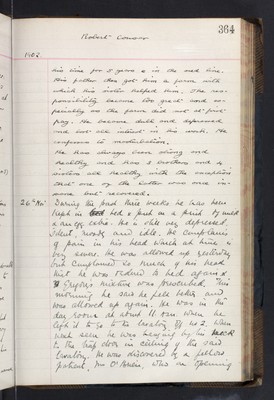 364
Robert Connor
1902.
his time for 5 years is in the meat line.
His father then got him a farm with
which his sister helped him. The res-
ponsibility became too great and es-
pecially as the farm did not at first
pay. He became dull and depressed
and lost all interest in his work. He
confesses to masturbation.
He has always been strong and
healthy and has 3 brothers and 4
sisters all healthy with the exception
that one of the latter was once in-
sane but recovered.
26th Nov. During the past three weeks he has been
kept in bed & put on a period of milk
& an egg extra. He is still very depressed,
silent, moody and idle. He complains
of pain in his head which at times is
very severe. He was allowed up yesterday
but complained so much of his head
that he was ordered to bed again &
Gregory's mixture was prescribed. This
morning he said he felt better and
was allowed up again. He was in the
day room at about 11 a.m. when he
left it to go to the lavatory of no 2. When
next seen he was hanging by his
to the trap door in ceiling of the said
lavatory. He was discovered by a fellow
patient, Mr O'Brien who on opening